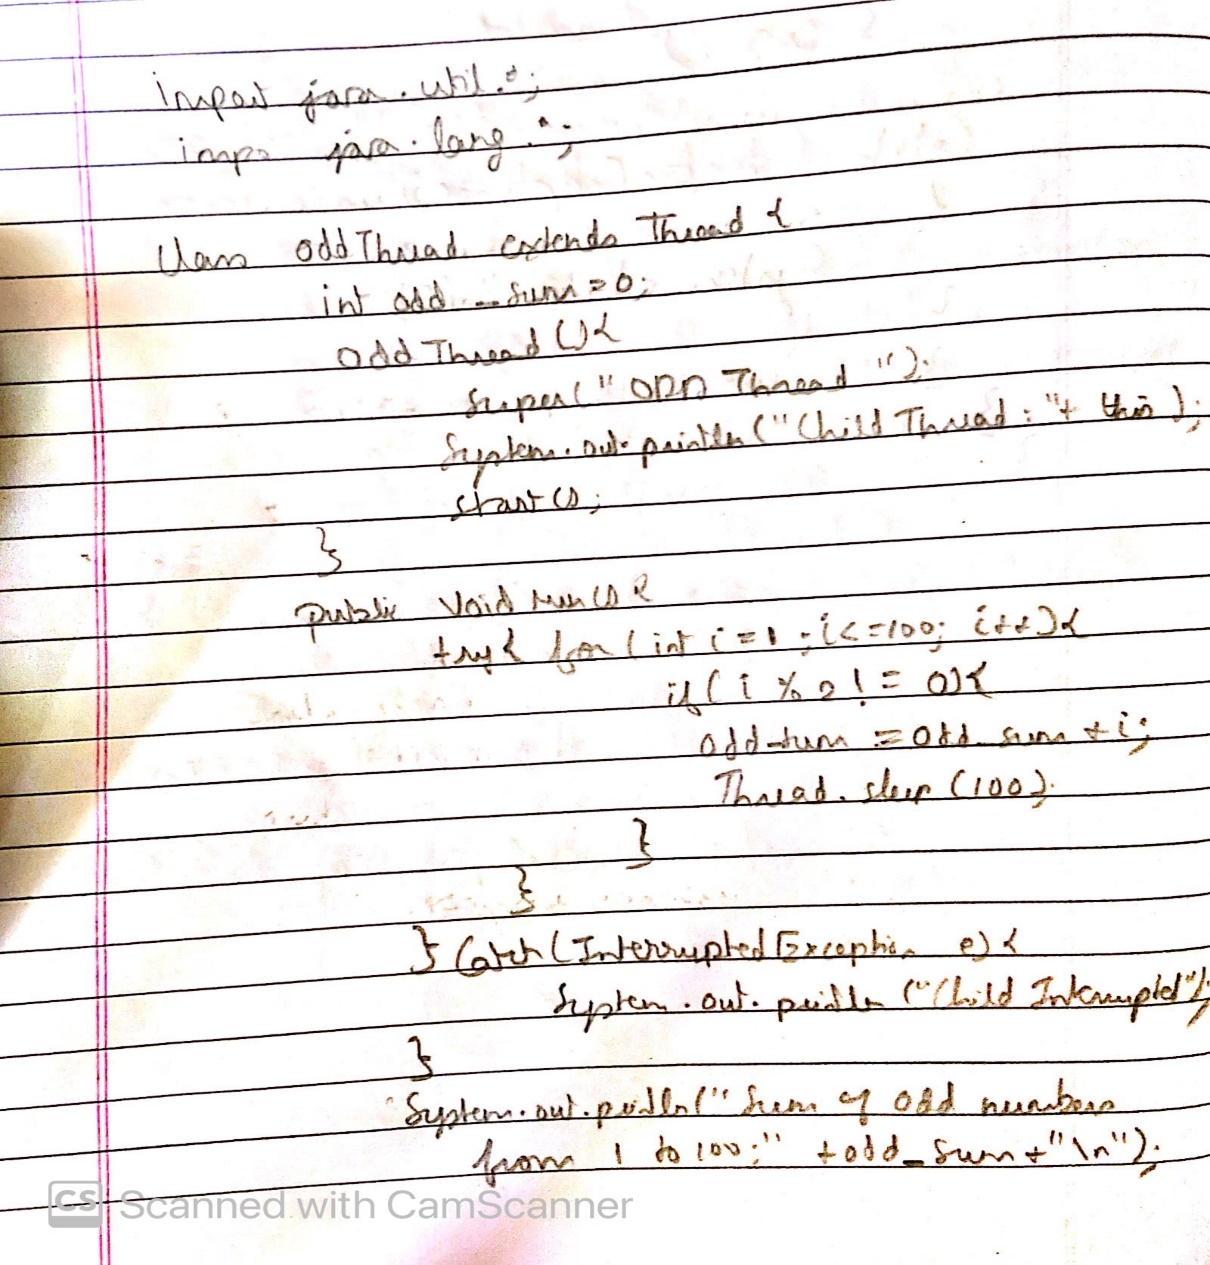 import java.util.*;
impo java.lang.*;
class oddThread extends Thread {
int odd_sum=0;
odd Thread () {
super("ODD Thread");
System.out.println("Child Thread: "+ this);
start();
}
public void run() {
try { for (int i=1; i<=100; i++) {
if (i % 2 != 0) {
odd_sum = odd_sum + i;
Thread.sleep (100);
}
}
} catch (InterruptedException e) {
System.out.println ("Child Interrupted");
}
System.out.println(" Sum of odd numbers
from 1 to 100:" + odd_sum + "\n");
CS Scanned with CamScanner